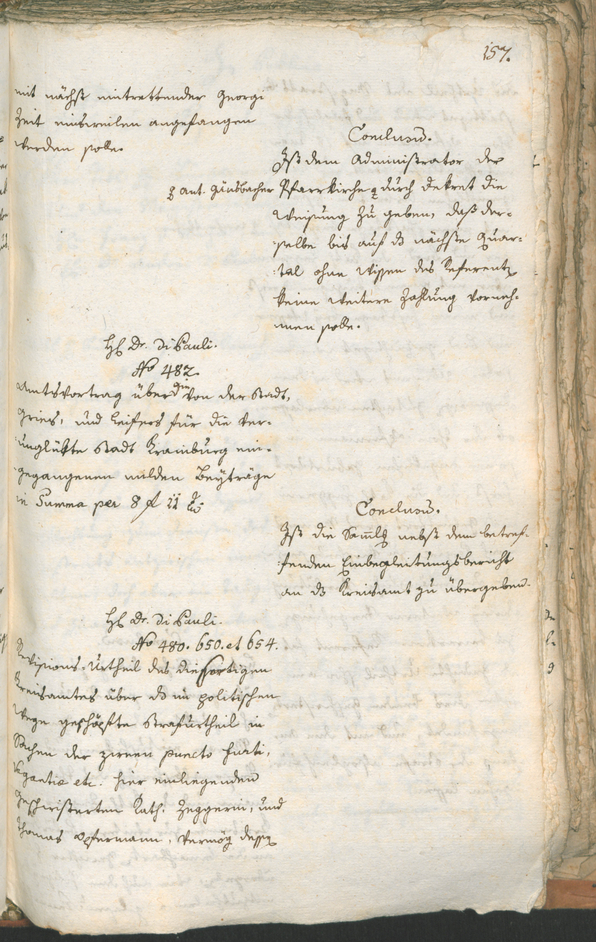 157.
mit nächst eintrettender Georgi
Zeit einsweilen angefangen
werden solle.
Conclusum.
Ist dem Administrator der
Ant. Günsbacher Pfarrkirche durch Dekret die
Weisung zu geben, daß der-
selbe bis auf das nächste Quar-
tal ohne Wissen des Referenten
keine weitere Zahlung vorneh-
men solle.
H. Dr. Di Pauli.
No 482.
Amtsvortrag über die von der Stadt,
Gries, und Leifers für die ver-
unglükte Stadt Krainburg ein-
gegangenen milden Beyträge
in Summa per 8 f 22 x
Conclusum.
Ist die nebst dem betref-
fenden Einbegleitungsbericht
an das Kreisamt zu übergeben.
H. Dr. Di Pauli.
No 480. 650. et 654.
Revisions-Urtheil des diesortigen
Kreisamtes über das im politischen
Wege geschöpfte Strafurtheil in
Sachen der zween puncto furti,
Vagantia etc. hier einliegenden
Geschwisterten Kath. Zeggerin, und
Thomas Opfermann, vermög dessen